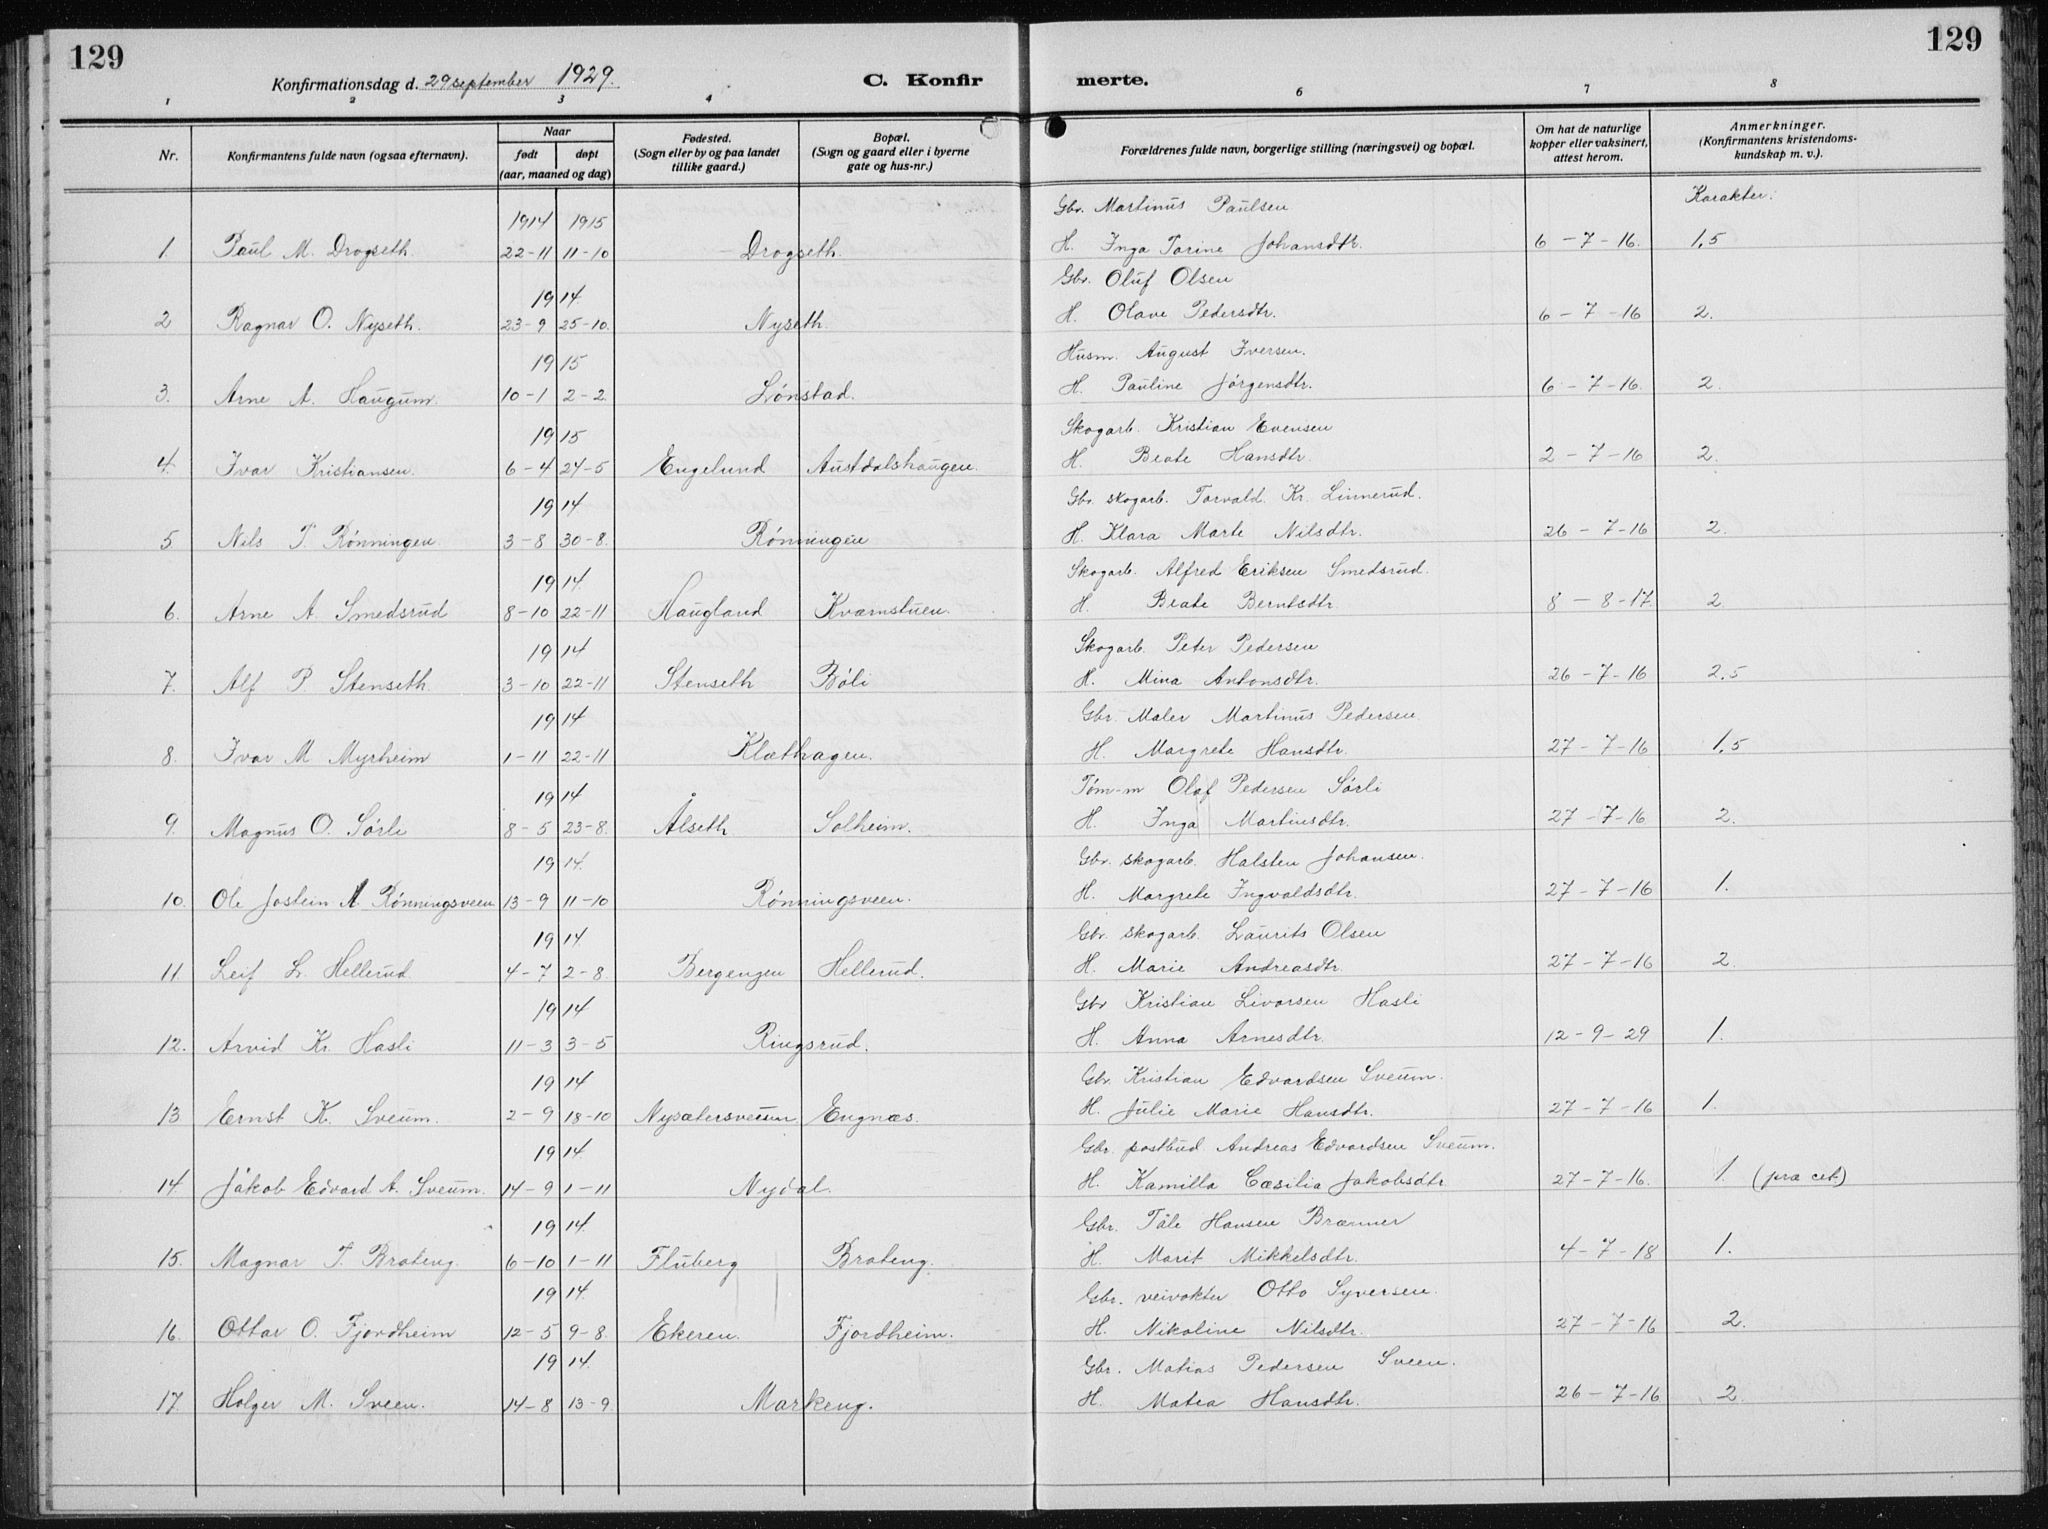 129
129
Konfirmationsdag d. 29 september 1929.
C. Konfir
merte.
1 2 3 4 6 7 8
Nr.
Konfirmantens fulde navn (ogsaa efternavn).
Naar
født døpt
(aar, maaned og dag)
Fødested.
(Sogn eller by og paa landet
tillike gaard.)
Bopæl.
(Sogn og gaard eller i byerne
gate og hus-nr.)
Forældrenes fulde navn, borgerlige stilling (næringsvei) og bopæl.
Om hat de naturlige
kopper eller vaksinert,
attest herom.
Anmerkninger.
(Konfirmantens kristendoms-
kundskap m. v.).
Karakter:
1914 1915 Gbr. Martinus Paulsen
1. Paul M. Drogseth. 22-11 11-10 Drogseth. H. Inga Torine Johansdtr. 6-7-16. 1,5
1914. Gbr. Oluf Olsen
2 Ragnar O. Nyseth. 23-9 25-10. Nyseth. H. Olave Pedersdtr. 6-7-16 2.
1915 Husm. August Iversen.
3. Arne A. Haugum. 10-1 2-2. Lønstad. H. Pauline Jørgensdtr. 6-7-16. 2.
1915 Skogarb. Kristian Evensen
4. Ivar Kristiansen. 6-4 24-5 Engelund Austdalshaugen. H. Beate Hansdtr. 2-7-16 2.
1914 Gbr. skogarb. Torvald Kr. Linnerud.
5. Nils T. Rønningen 3-8 30-8. Rønningen H. Klara Marte Nilsdtr. 26-7-16 2.
1914. Skogarb. Alfred Eriksen Smedsrud.
6. Arne A. Smedsrud 8-10 22-11 Haugland Kvarnstuen. H. Beate Berntsdtr. 8-8-17. 2.
1914 Skogarb. Peter Pedersen
7. Alf P. Stenseth. 3-10 22-11 Stenseth Bøli H. Mina Antonsdtr. 26-7-16 2,5
1914 Gbr. Maler Martinus Pedersen.
8. Ivar M Myrheim 1-11 22-11 Klæthagen. H. Margrete Hansdtr. 27-7-16 1,5
1914 Tøm-m Olaf Pedersen Sørli
9. Magnus O. Sørli 8-5 23-8. Ålseth Solheim. H. Inga Martinsdtr. 27-7-16 2.
1914. Gbr. skogarb. Halsten Johansen.
10. Ole Jostein Rønningsveen 13-9 11-10 Rønningsveen. H. Margrete Ingvaldsdtr. 27-7-16 1.
1914. Gbr. skogarb. Laurits Olsen
11. Leif L. Hellerud 4-7 2-8. Bergengen Hellerud. H. Marie Andreasdtr. 27-7-16 2.
1914 Gbr Kristian Livorsen Hasli
12. Arvid Kr. Hasli 11-3 3-5 Ringsrud. H. Anna Arnesdtr. 12-9-29 1.
1914 Gbr. Kristian Edvardsen Sveum.
13. Ernst K. Sveum. 2-9 18-10 Nysætersveum Engnæs. H. Julie Marie Hansdtr. 27-7-16 1.
1914 Gbr. postbud Andreas Edvardsen Sveum.
14. Jakob Edvard A. Sveum. 14-9 1-11 Nydal. H. Kamilla Cæsilia Jakobsdtr. 27-7-16. 1. (præ cet.)
1914. Gbr. Tåle Hansen Brænner
15. Magnar T. Brateng. 6-10 1-11 Fluberg Brateng. H. Marit Mikkelsdtr. 4-7-18 1.
1914. Gbr. veivokter Otto Syversen.
16. Ottar O. Fjordheim 12-5 9-8. Ekeren. Fjordheim. H. Nikoline Nilsdtr. 27-7-16 2.
1914. Gbr. Matias Pedersen Sveen.
17. Holger M. Sveen. 14-8 13-9 Markeng. H. Matea Hansdtr. 26-7-16 2.